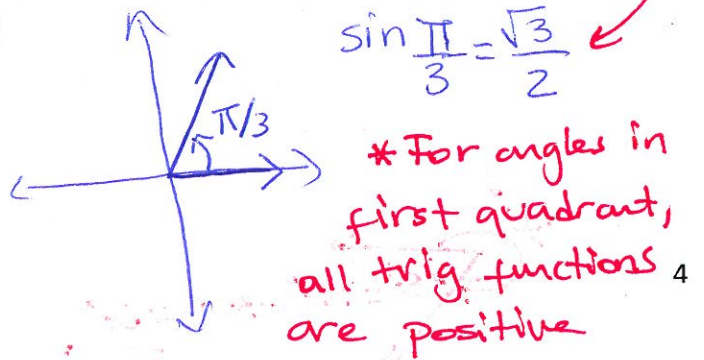 sin π/3 = √3/2
π/3
* For angles in
first quadrant,
all trig functions
are positive
4